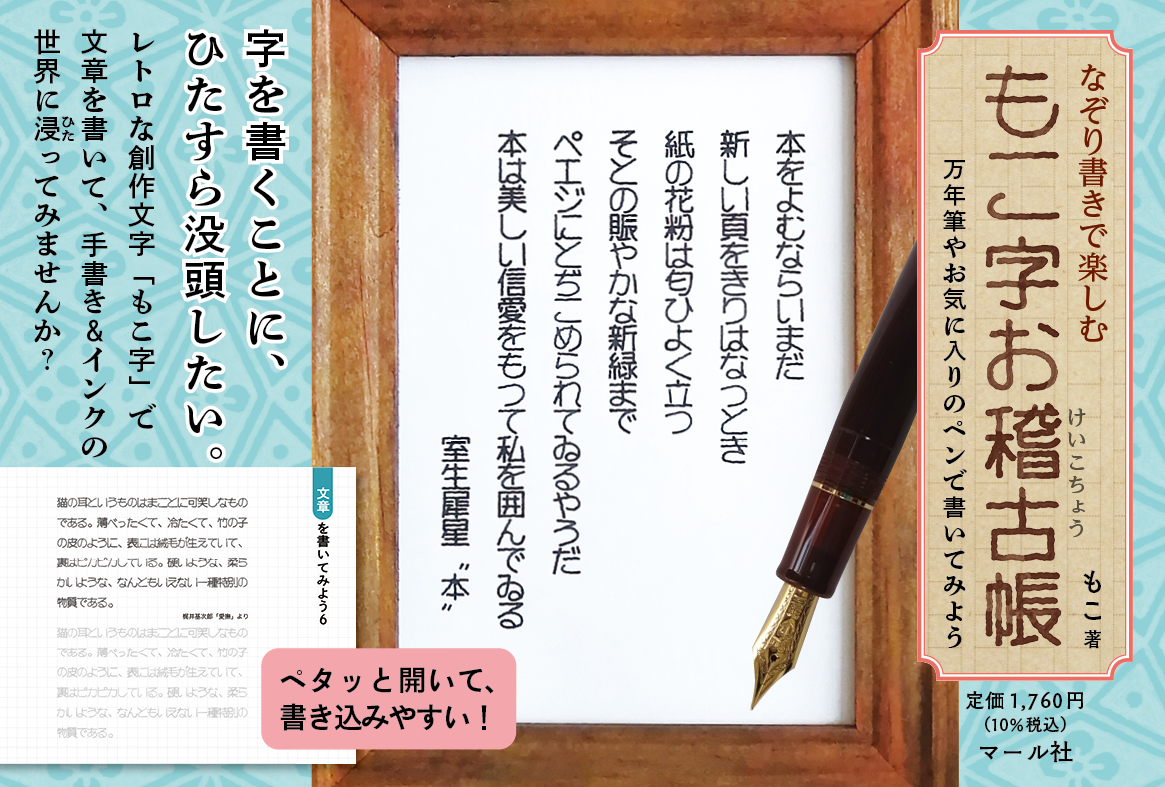 なぞり書きで楽しむ
もこ字お稽古帳
けいこちょう
もこ 著
万年筆やお気に入りのペンで書いてみよう
定価1,760円
(10%税込)
マール社
本をよむならいまだ
新しい頁をきりはなつとき
紙の花粉は匂ひよく立つ
そとの賑やかな新緑まで
ペエジにとぢこめられてゐるやうだ
本は美しい信愛をもつて私を囲んでゐる
室生犀星 “本”
字を書くことに、
ひたすら没頭したい。
レトロな創作文字「もこ字」で
文章を書いて、手書き&インクの
世界に浸ってみませんか?
ひた
文章を書いてみよう6
猫の耳というものはまことに可笑しなもの
である。薄べったくて、冷たくて、竹の子
の皮のように、表には絨毛が生えていて、
裏はピカピカしている。硬いような、柔ら
かいような、なんともいえない一種特別の
物質である。
梶井基次郎「愛撫」より
猫の耳というものはまことに可笑しなもの
である。薄べったくて、冷たくて、竹の子
の皮のように、表には絨毛が生えていて、
裏はピカピカしている。硬いような、柔ら
かいような、なんともいえない一種特別の
物質である。
ペタッと開いて、
書き込みやすい!